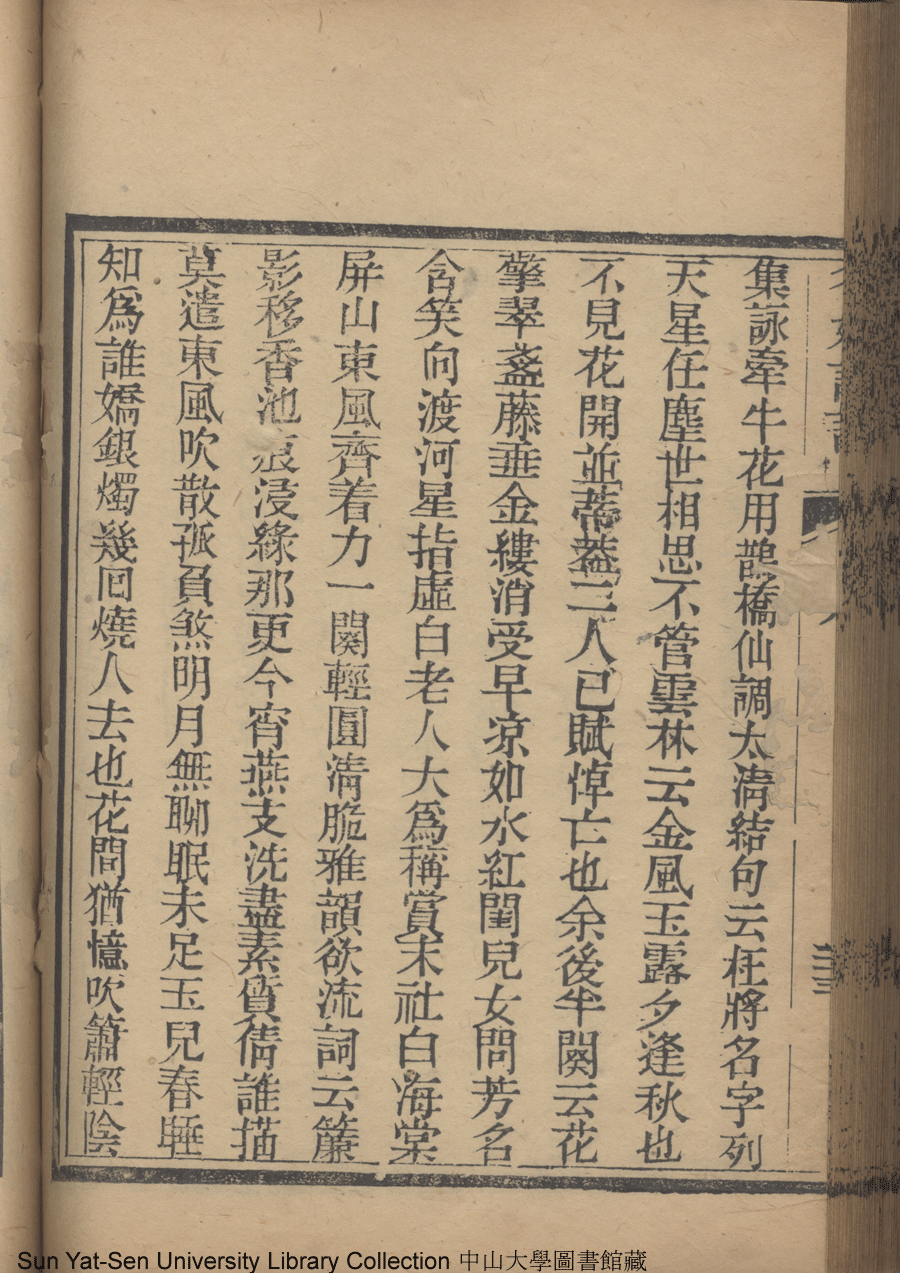 集詠牽牛花用鵲橋仙調太淸結句云枉將名字列
天星任塵世相思不管雲林云金風玉露夕逢秋也
不見花開並蒂葢二人已賦悼亡也余後半闋云花
擎翠盞藤垂金縷消受早凉如水紅閨兒女問芳名
含笑向渡河星指虛白老人大爲稱賞末社白海棠
屏山東風齊着力一闋輕圓淸脆雅韻欲流詞云簾
影移香池痕浸綠那更今宵燕支洗盡素質倩誰描
莫遣東風吹散孤負煞明月無聊眠未足玉兒春睡
知爲誰嬌銀燭幾回燒人去也花間猶憶吹簫輕陰
Sun Yat-Sen University Library Collection 中山大學圖書館藏